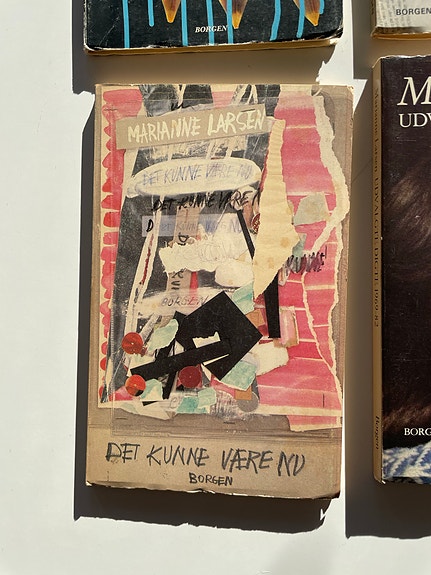 BORGEN
BORGEN
MARIANNE LARSEN
DET KUNNE VÆRE NU
DET KUNNE VÆRE N
KUNNE
BORGEN
DET KUNNE VÆRE NU
BORGEN
M
UDV
BORG
Borgen